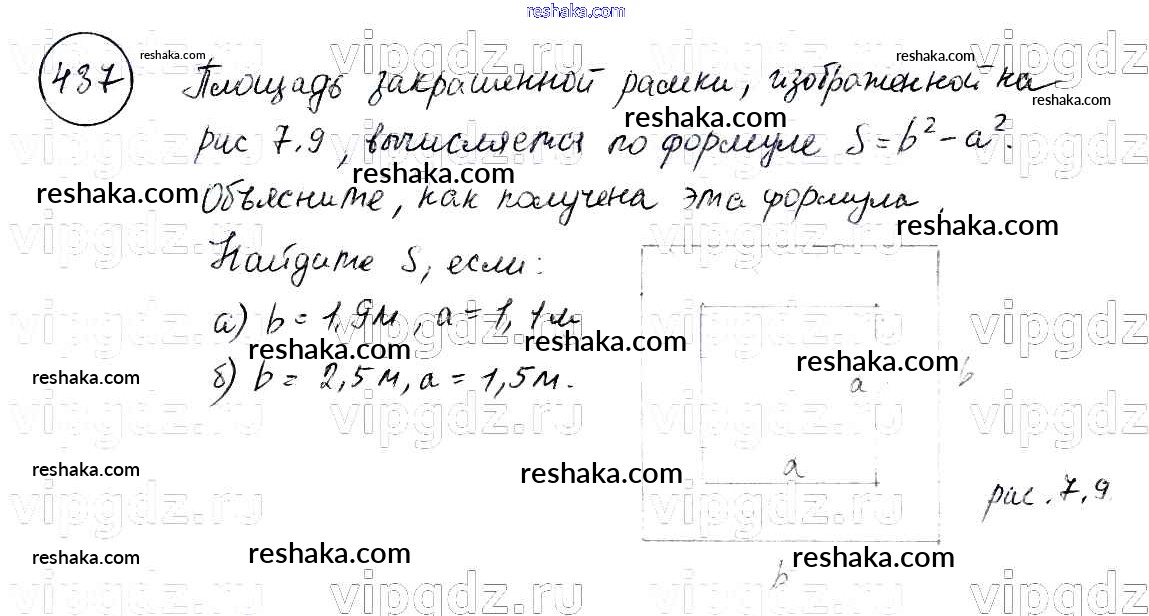 reshaka.com
437 reshaka.com Площадь закрашенной рамки, изображенной на
reshaka.com reshaka.com reshaka.com
рис 7.9, вычисляется по формуле S = b² - a².
reshaka.com reshaka.com
Объясните, как получена эта формула.
reshaka.com
Найдите S, если:
а) b = 1,9м, a = 1,1м
reshaka.com reshaka.com reshaka.com
б) b = 2,5м, a = 1,5м.
reshaka.com
a b
reshaka.com reshaka.com
a
рис. 7.9
reshaka.com reshaka.com reshaka.com
b
vipgdz.ru vipgdz.ru vipgdz.ru vipgdz
vipgdz.ru vipgdz.ru vipgdz.ru vipgdz
vipgdz.ru vipgdz.ru vipgdz.ru vipgdz
vipgdz.ru vipgdz.ru vipgdz.ru vipgdz
vipgdz.ru vipgdz.ru vipgdz.ru vipgdz
vipgdz.ru vipgdz.ru vipgdz.ru vipgdz
vipgdz.ru vipgdz.ru vipgdz.ru vipgdz